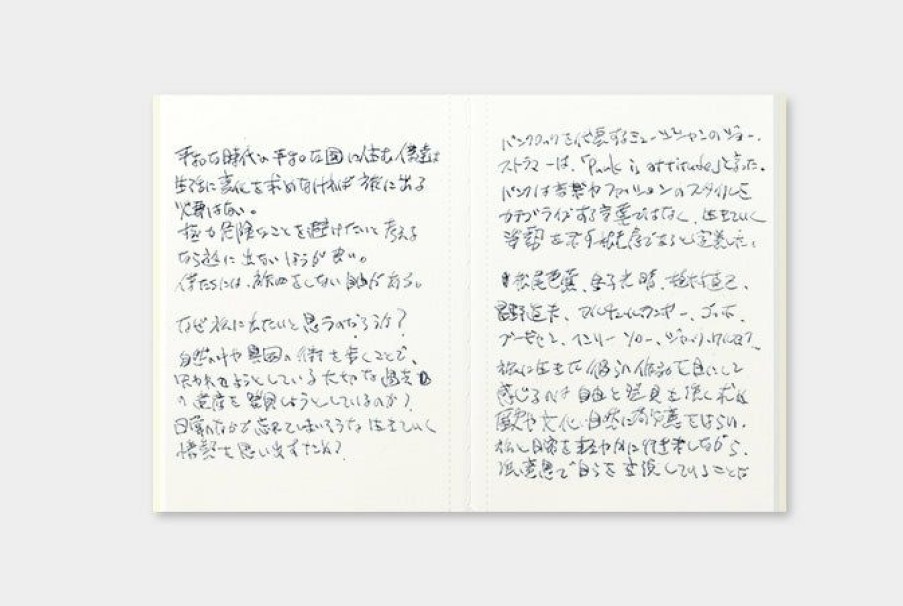 平和な時代の平和な国に住む僕達は
生活に変化を求めなければ旅に出る
必要はない。
極力危険なことを避けたいと考える
なら旅に出ないほうが良い。
僕たちには、旅をしない自由がある。
なぜ旅に出たいと思うのだろうか？
自然の中や異国の街を歩くことで、
失われようとしている大切な過去
の遺産を発見しようとしているのか？
日常のなかで忘れてしまいそうな 生きていく
情熱を思い出すため？
パンクロックを代表するミュージシャンのジョー・
ストラマーは、「Punk is attitude」と言った。
パンクは音楽やファッションのスタイルを
カテゴライズする言葉ではなく、生きていく
姿勢を示す態度であると定義した。
松尾芭蕉、金子光晴、植村直己、
星野道夫、ゴッホ、
ヘンリー・ソロー、
旅に生きた彼らの作品を目にして
感じるのは自由と発見を強く求め
歴史や文化、自然に敬意をはらい、
旅と日常を軽やかに行き来しながら、
強い意思で自らを表現していることだ